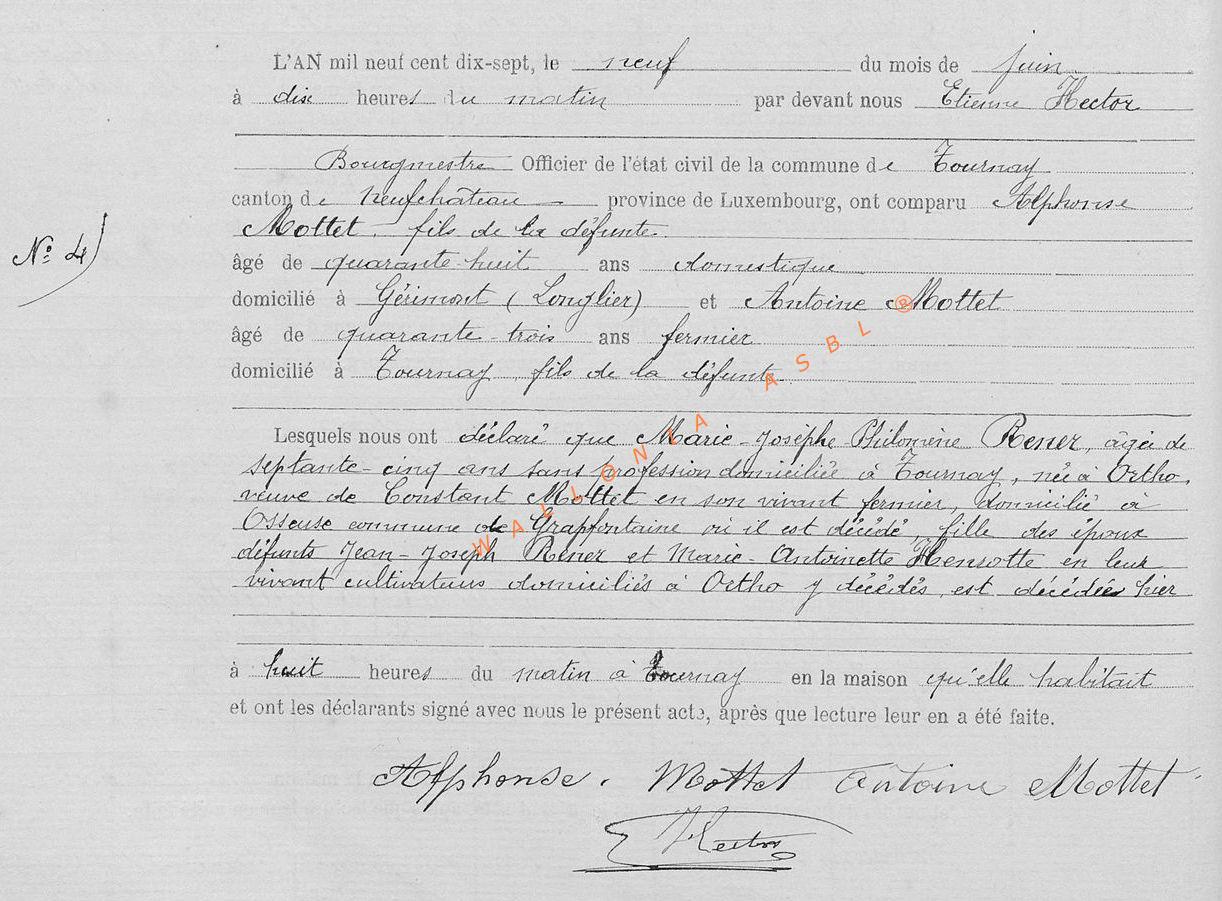 L'AN mil neuf cent dix-sept, le neuf du mois de juin
à dix heures du matin par devant nous Etienne Hector
Bourgmestre Officier de l'état civil de la commune de Tournay
canton de Neufchâteau province de Luxembourg, ont comparu Alphonse
Mottet fils de la défunte
N° 4)
âgé de quarante-huit ans domestique
domicilié à Gérimont (Longlier) et Antoine Mottet
âgé de quarante-trois ans fermier
domicilié à Tournay, fils de la défunte
Lesquels nous ont déclaré que Marie-Josèphe Philomène Rener, âgée de
septante-cinq ans sans profession domiciliée à Tournay, née à Ortho,
veuve de Constant Mottet en son vivant fermier, domicilié à
Osseuse commune de Grapfontaine où il est décédé, fille des époux
défunts Jean-Joseph Rener et Marie-Antoinette Hensotte en leur
vivant cultivateurs domiciliés à Ortho y décédés, est décédée hier
à huit heures du matin à Tournay en la maison qu'elle habitait
et ont les déclarants signé avec nous le présent acte, après que lecture leur en a été faite.
Alphonse. Mottet Antoine Mottet
Hector
WALLONIA ASBL ®